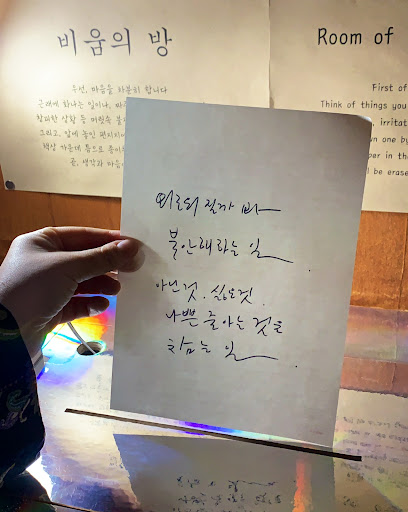 비움의 방
우선, 마음을 차분히 합니다
근래에 화나는 일이나,
창피한 상황 등 머릿속
그리고, 앞에 놓인 편지지에
책상 가운데 틈으로
끝, 생각과
Room of
First of
Think of things you
irritat
wn one by
per in th
l be erase
외로워 질까 봐
불안해하는 일.
아닌 것, 싫은 것,
나쁜 줄 아는 것을
참는 일.